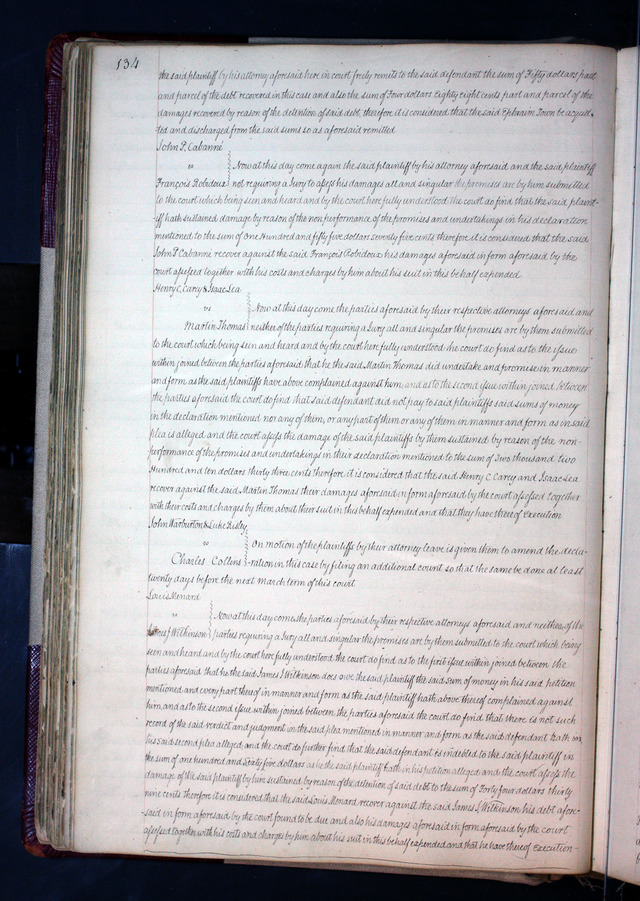 134
the said plaintiff by his attorney aforesaid here in court freely remits to the said defendant the sum of Fifty dollars part
and parcel of the debt recovered in this case and also the sum of Four dollars Eighty eight cents part and parcel of the
damages recovered by reason of the detention of said debt, therefore it is considered that the said Ephraim Town be acquit-
ted and discharged from the said sums so as aforesaid remitted
John P. Cabanné
vs
Now at this day come again the said plaintiff by his attorney aforesaid and the said plaintiff
François Robidoux not requiring a Jury to assess his damages all and singular the premises are by him submitted
to the court which being seen and heard and by the court here fully understood the court do find that the said plaint-
iff hath sustained damage by reason of the non performance of the promises and undertakings in his declaration
mentioned to the sum of One Hundred and fifty five dollars seventy five cents therefore it is considered that the said
John P Cabanne recover against the said François Robidoux his damages aforesaid in form aforesaid by the
court assessed together with his costs and charges by him about his suit in this behalf expended
Henry C. Carey & Isaac Lea
vs
Now at this day came the parties aforesaid by their respective attorneys aforesaid and
Martin Thomas neither of the parties requiring a Jury all and singular the premises are by them submitted
to the court which being seen and heard and by the court here fully understood the court do find as to the issue
within joined between the parties aforesaid that he the said Martin Thomas did undertake and promise in manner
and form as the said plaintiffs have above complained against him, and as to the second issue within joined between
the parties aforesaid the court do find that said defendant did not pay to said plaintiffs said sums of money
in the declaration mentioned nor any of them, or any part of them or any of them in manner and form as in said
plea is alleged and the court assess the damage of the said plaintiffs by them sustained by reason of the non-
performance of the promises and undertakings in their declaration mentioned to the sum of Two thousand two
Hundred and ten dollars thirty three cents therefore it is considered that the said Henry C Carey and Isaac Lea
recover against the said Martin Thomas their damages aforesaid in form aforesaid by the court assessed together
with their costs and charges by them about their suit in this behalf expended and that they have thereof Execution
John Warburton & Luke Risley
vs
On motion of the plaintiffs by their attorney leave is given them to amend the decla-
Charles Collins ration in this case by filing an additional count so that the same be done at least
twenty days before the next march term of this court
Louis Menard
vs
Now at this day come the parties aforesaid by their respective attorneys aforesaid and neither of the
James J Wilkinson parties requiring a Jury all and singular the premises are by them submitted to the court which being
seen and heard and by the court here fully understood the court do find as to the first issue within joined between the
parties aforesaid that he the said James J Wilkinson does owe the said plaintiff the said sum of money in his said petition
mentioned and every part thereof in manner and form as the said plaintiff hath above thereof complained against
him, and as to the second issue within joined between the parties aforesaid the court do find that there is not such
record of the said verdict and judgment in the said plea mentioned in manner and form as the said defendant hath in
his said second plea alleged, and the court do further find that the said defendant is indebted to the said plaintiff in
the sum of one hundred and Sixty five dollars as he the said plaintiff hath in his petition alleged and the court assess the
damage of the said plaintiff by him sustained by reason of the detention of said debt to the sum of Forty four dollars thirty
nine cents therefore it is considered that the said Louis Menard recover against the said James J Wilkinson his debt afore-
said in form aforesaid by the court found to be due and also his damages aforesaid in form aforesaid by the court
assessed together with his costs and charges by him about his suit in this behalf expended and that he have thereof Execution-